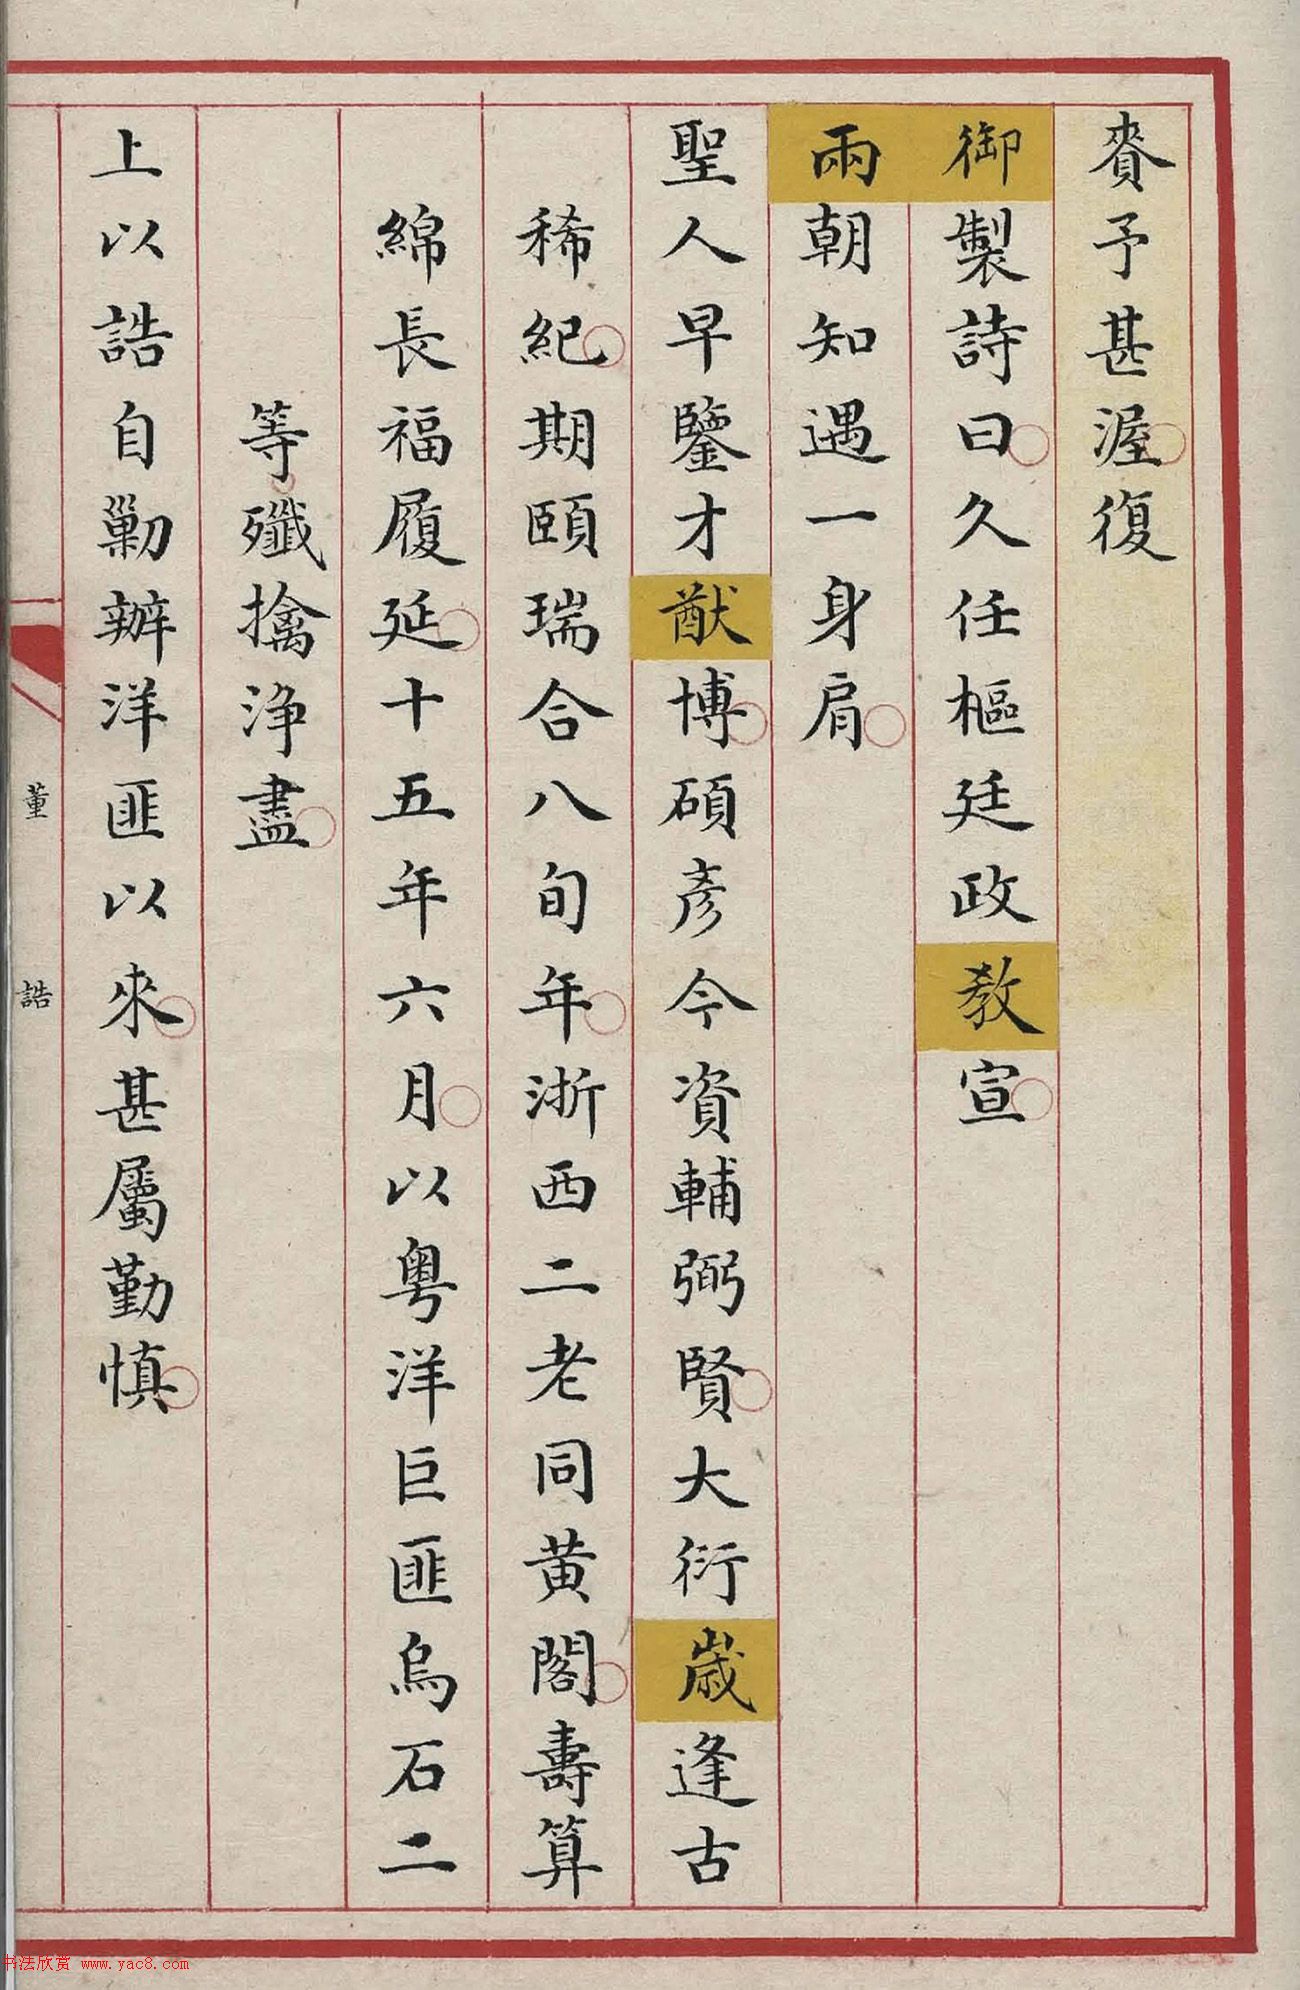 賚予甚渥復
御製詩曰久任樞廷政教宣
兩朝知遇一身肩
聖人早鑒才猷博碩彥今資輔弼賢大衍歲逢古
稀紀期頤瑞合八旬年浙西二老同黃閣壽算
綿長福履延十五年六月以粵洋巨匪烏石二
等殲擒淨盡
上以誥自勦辦洋匪以來甚屬勤慎
董誥
书法欣赏 www.yac8.com